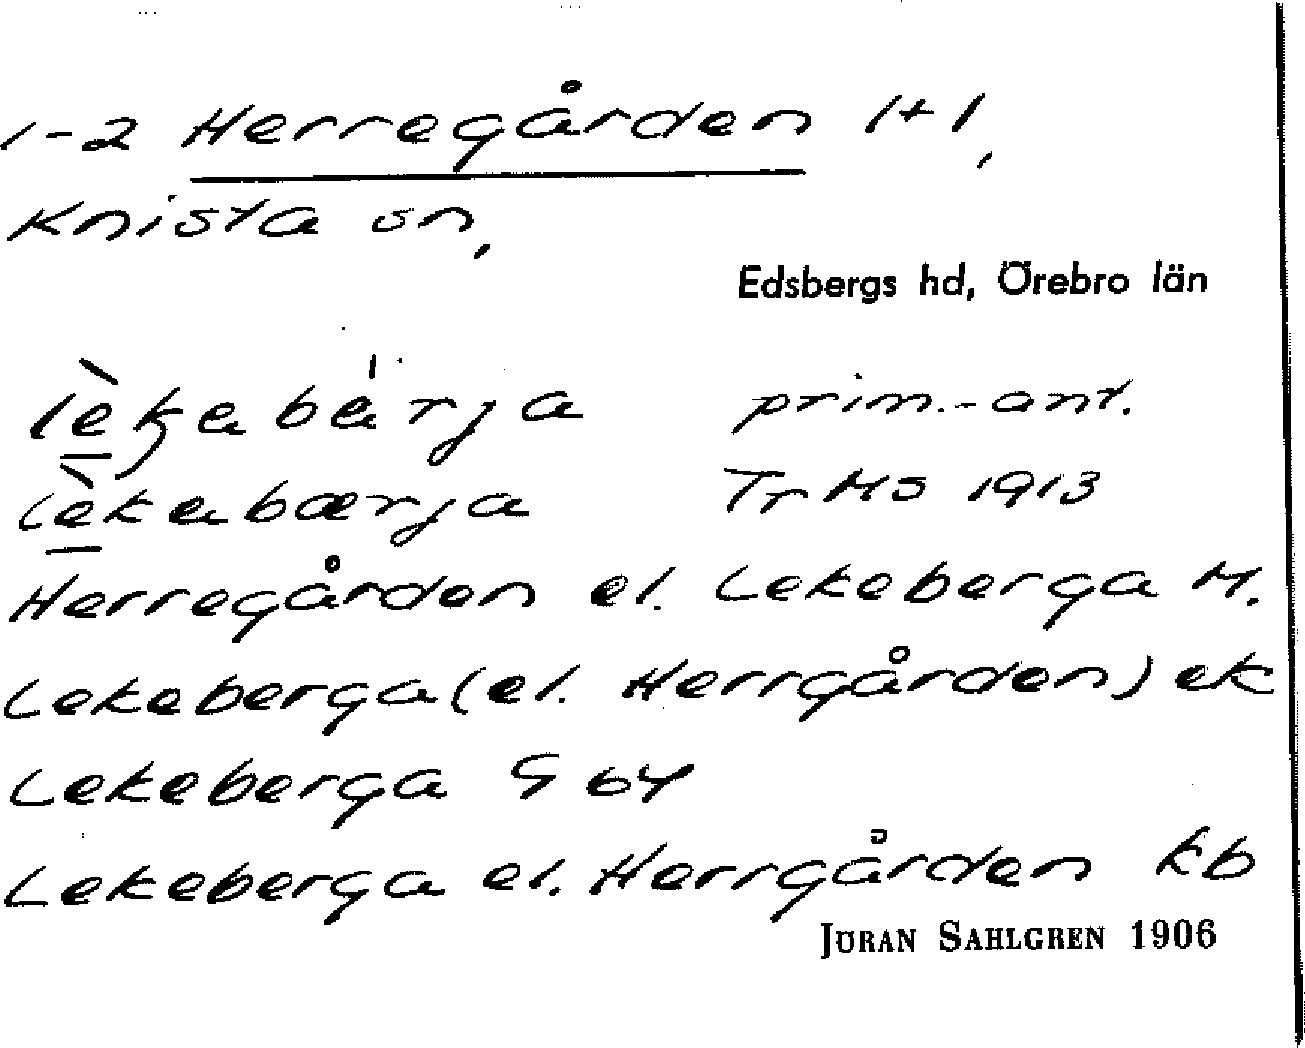 1-2 Herregården 1+1,
Knista sn,
Edsbergs hd, Örebro län
lèkebärja prim.-ant.
lèkebærja Tr HS 1913
Herregården el. Lekeberga H.
Lekeberga (el. Herrgården) ek
Lekeberga G 64
Lekeberga el. Herrgården kb
JÖRAN SAHLGREN 1906